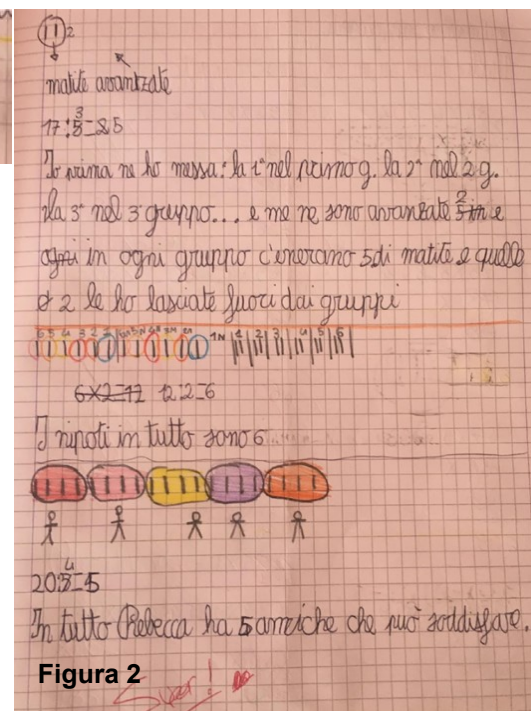 2
matite avantzate
17:3=5
Io prima ne ho messa: la 1ª nel primo g. la 2ª nel 2 g.
la 3ª nel 3 gruppo... e me ne sono avantate 2 e
in ogni gruppo c'enerano 5 di matite e quelle
2 le ho lasciate fuori dai gruppi
6 5 4 3 2 1N 1 2 3 4 5 6
6X2=12 12:2=6
I nipoti in tutto sono 6
20:4=5
In tutto Rebecca ha 5 amiche che può soddisfare.
Figura 2
Super!